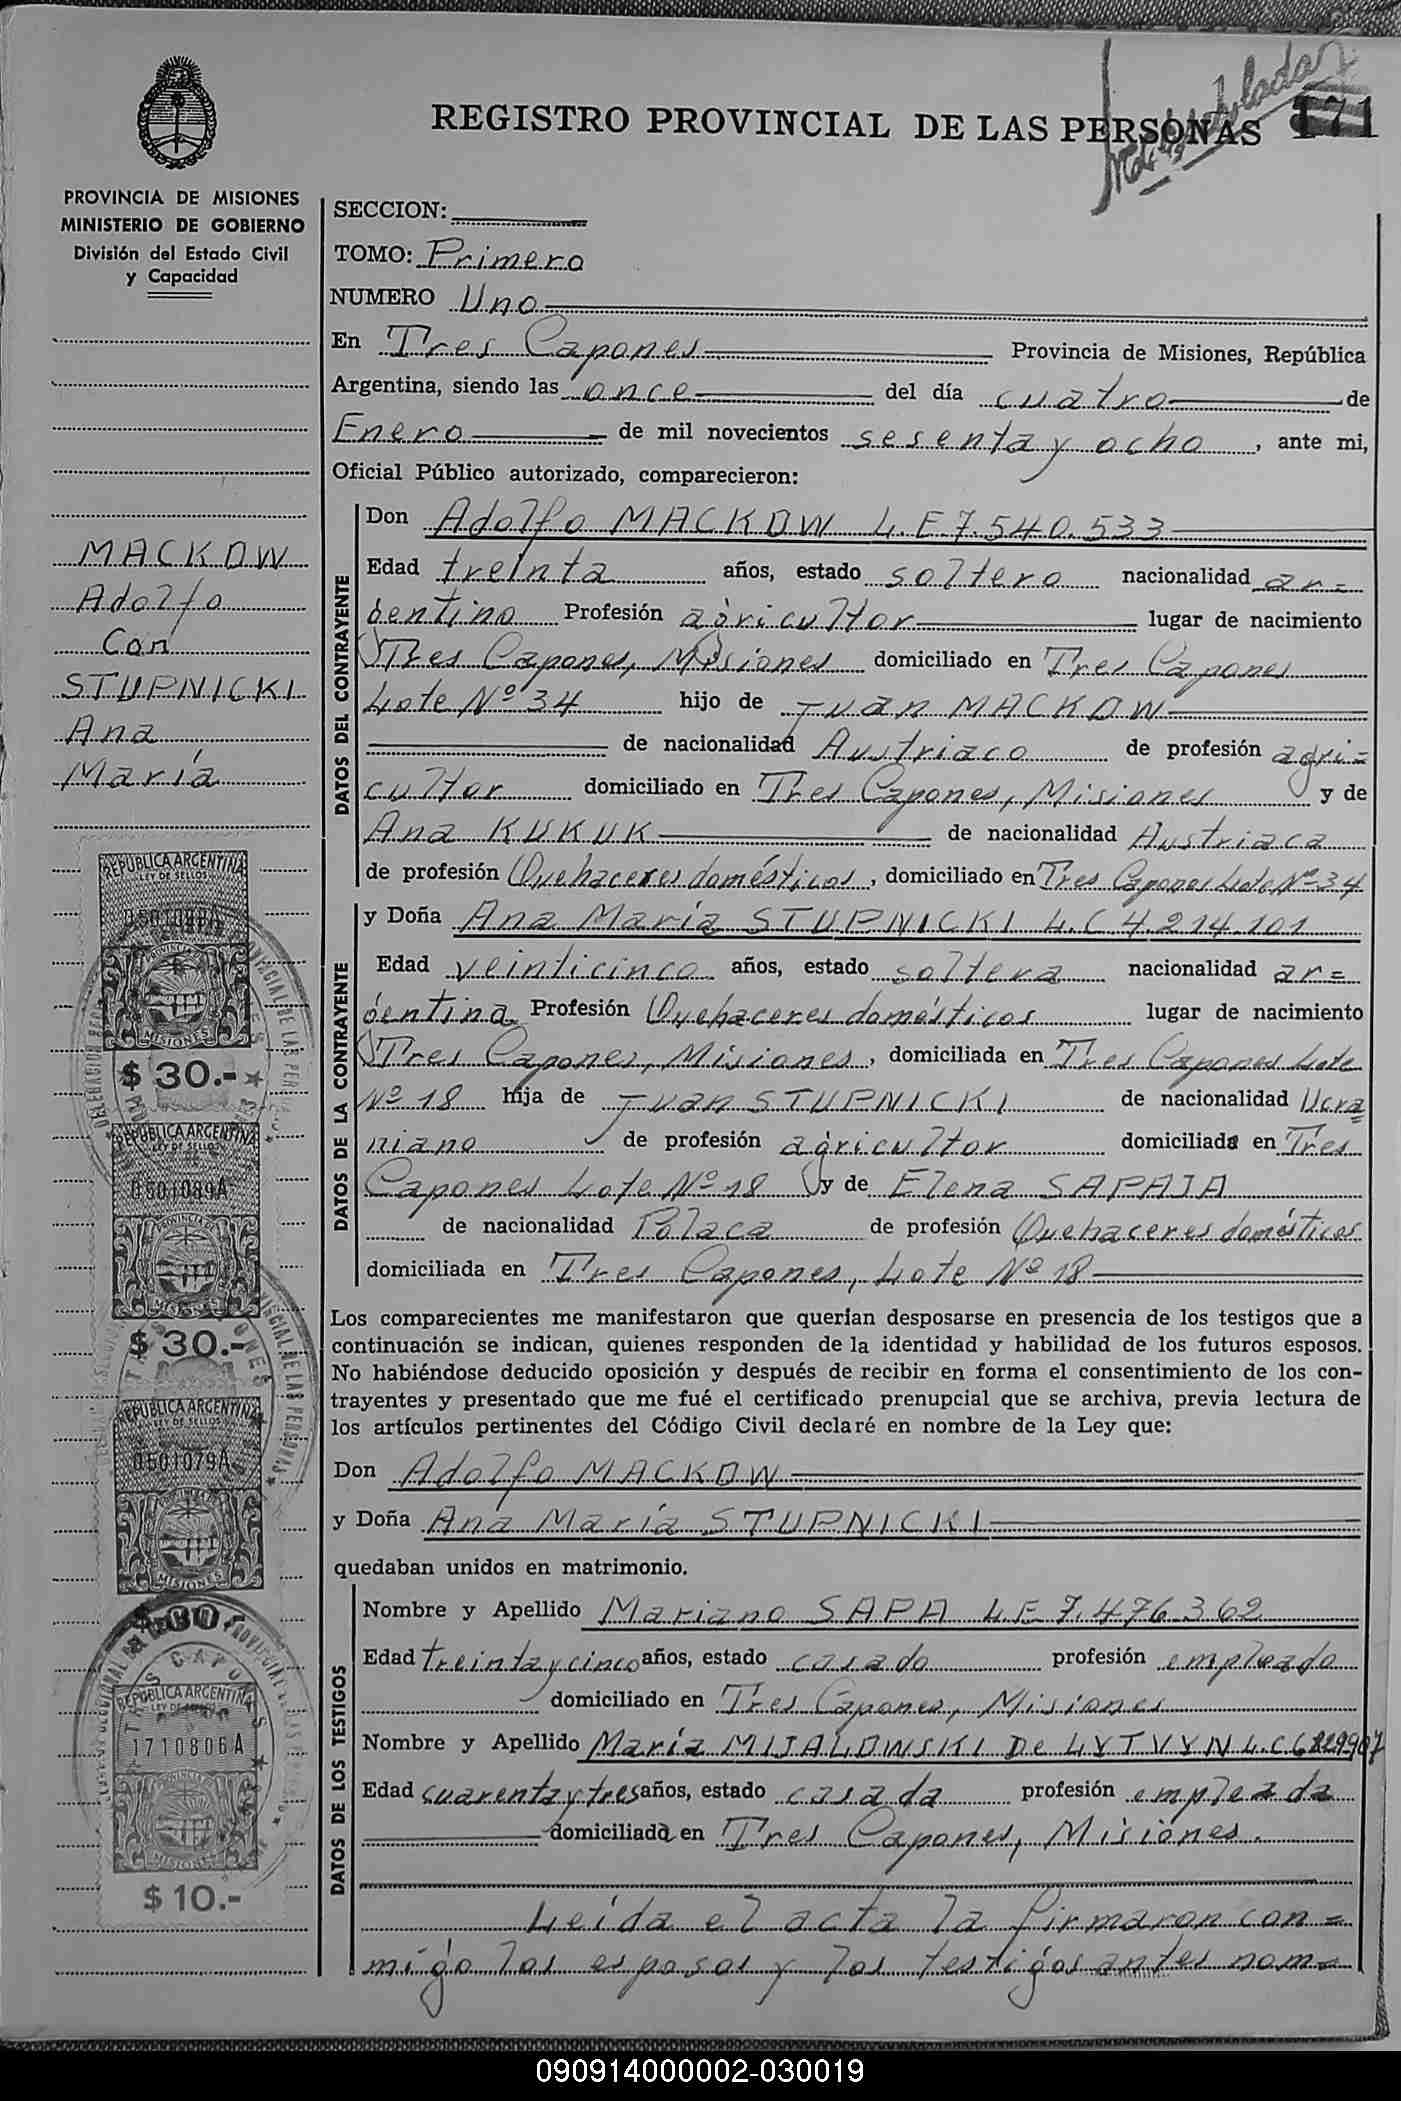 REGISTRO PROVINCIAL DE LAS PERSONAS
171
PROVINCIA DE MISIONES
MINISTERIO DE GOBIERNO
División del Estado Civil
y Capacidad
MACKOW
Adolfo
Con
STUPNICKI
Ana
María
REPUBLICA ARGENTINA
LEY DE SELLOS
MISIONES
$ 30.-
REPUBLICA ARGENTINA
LEY DE SELLOS
0501089A
MISIONES
$ 30.-
REPUBLICA ARGENTINA
LEY DE SELLOS
0501079A
MISIONES
$ 30.-
REPUBLICA ARGENTINA
LEY DE SELLOS
1710806A
MISIONES
$ 10.-
SECCION:
TOMO: Primero
NUMERO Uno
En Tres Capones Provincia de Misiones, República
Argentina, siendo las once del día cuatro de
Enero de mil novecientos sesenta y ocho, ante mi,
Oficial Público autorizado, comparecieron:
DATOS DEL CONTRAYENTE
Don Adolfo MACKOW L.E 7.540.533
Edad treinta años, estado soltero nacionalidad ar=
gentino Profesión agricultor lugar de nacimiento
Tres Capones, Misiones domiciliado en Tres Capones
Lote Nº 34 hijo de Juan MACKOW
de nacionalidad Austriaco de profesión agri=
cultor domiciliado en Tres Capones, Misiones y de
Ana KUKUK de nacionalidad Austriaca
de profesión Quehaceres domésticos, domiciliado en Tres Capones Lote Nº 34
DATOS DE LA CONTRAYENTE
y Doña Ana María STUPNICKI L.C 4.214.101
Edad veinticinco años, estado soltera nacionalidad ar=
gentina Profesión Quehaceres domésticos lugar de nacimiento
Tres Capones, Misiones, domiciliada en Tres Capones Lote
Nº 18 hija de Juan STUPNICKI de nacionalidad Ucra
niano de profesión agricultor domiciliado en Tres
Capones Lote Nº 18 y de Elena SAPAJA
de nacionalidad Polaca de profesión Quehaceres domésticos
domiciliada en Tres Capones, Lote Nº 18
Los comparecientes me manifestaron que querían desposarse en presencia de los testigos que a
continuación se indican, quienes responden de la identidad y habilidad de los futuros esposos.
No habiéndose deducido oposición y después de recibir en forma el consentimiento de los con-
trayentes y presentado que me fué el certificado prenupcial que se archiva, previa lectura de
los artículos pertinentes del Código Civil declaré en nombre de la Ley que:
Don Adolfo MACKOW
y Doña Ana María STUPNICKI
quedaban unidos en matrimonio.
DATOS DE LOS TESTIGOS
Nombre y Apellido Mariano SAPA L.E 7.476.362
Edad treinta y cinco años, estado casado profesión empleado
domiciliado en Tres Capones, Misiones
Nombre y Apellido María MIJALOWSKI De LYTVYN L.C
Edad cuarenta y tres años, estado casada profesión empleada
domiciliada en Tres Capones, Misiones.
Leída el acta la firmaron con=
migo los esposos y los testigos antes nom=
090914000002-030019